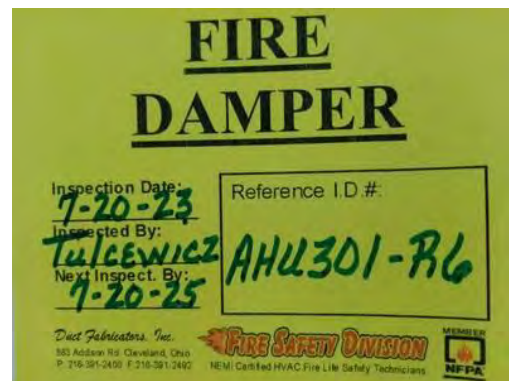 FIRE
DAMPER
Inspection Date:
7-20-23
Inspected By:
Tulcewicz
Next Inspect. By:
7-20-25
Reference I.D.#:
AHU301-R6
Duct Fabricators, Inc.
883 Addison Rd. Cleveland, Ohio
P. 216-391-2400 F. 216-391-2492
FIRE SAFETY DIVISION
NEMI Certified HVAC Fire Life Safety Technicians
MEMBER
NFPA